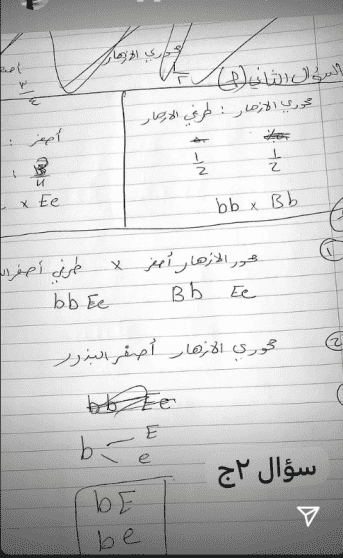 محوري الازهار
السؤال الثاني (P)
1/2
3/4
محوري الازهار : طرفي الازهار
أصفر :
1/2 1/2
bb x Bb
x Ee
①
محور الازهار أصفر x طرفي أصفر
bb Ee Bb Ee
②
محوري الازهار أصفر البذور
bb Ee
b
E
e
سؤال ٢ج
bE
be